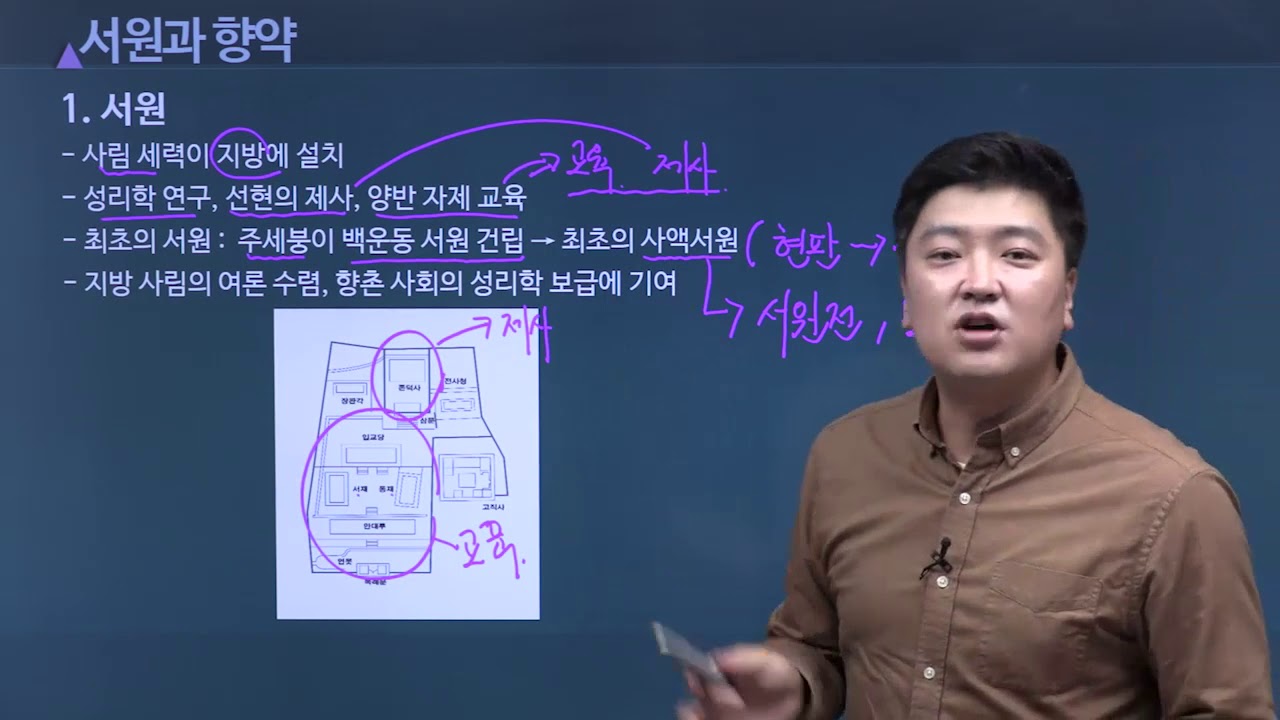 서원과 향약
1. 서원
- 사림 세력이 지방에 설치
- 성리학 연구, 선현의 제사, 양반 자제 교육
교육 제사
- 최초의 서원 : 주세붕이 백운동 서원 건립 → 최초의 사액서원
( 현판 →
- 지방 사림의 여론 수렴, 향촌 사회의 성리학 보급에 기여
→ 서원전,
→ 제사
존덕사
전사청
장판각
삼문
입교당
서재 동재
고직사
만대루
교육.
연못
복례문